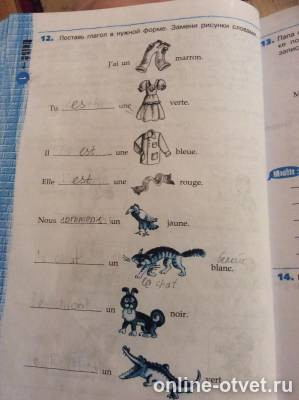 12. Поставь глагол в нужной форме. Замени рисунки словами.
J'ai un marron.
Tu es une verte.
Il est une bleue.
Elle est une rouge.
Nous un jaune.
un blanc.
le chat
un noir.
un vert
13. Папа
ке по
запис
14.
online-otvet.ru